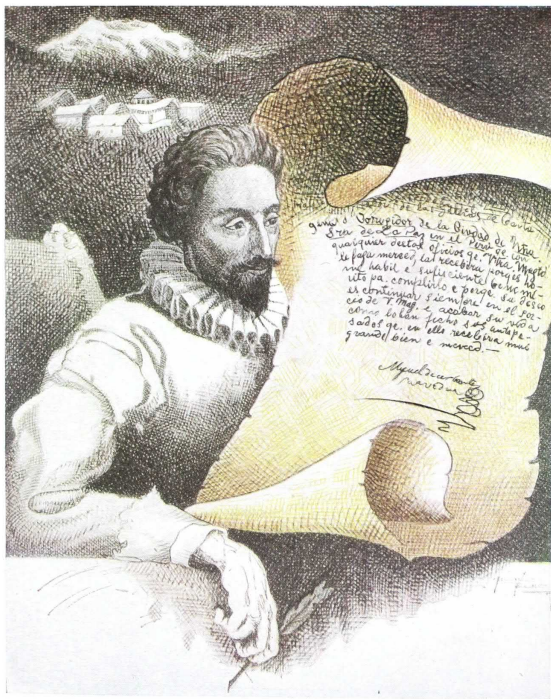 de las galeras de Carta
gena o Corregidor de la Ciudad de Ntra.
Sra. de La Paz en el Perú e con
qualquier destos oficios qe. Vtra. Magtd.
le haga merced, la recebirá porqes ho-
me habil e suficiente benemé-
rito pa. complirlo e porqe. su deseo
es continuar siempre en el ser-
cio de V. Mag. e acabar su vida
como lo han hecho sus antepa-
sados qe. en ello recebirá mui
grande bien e merced.—
Miguel de cerbantes
saavedra